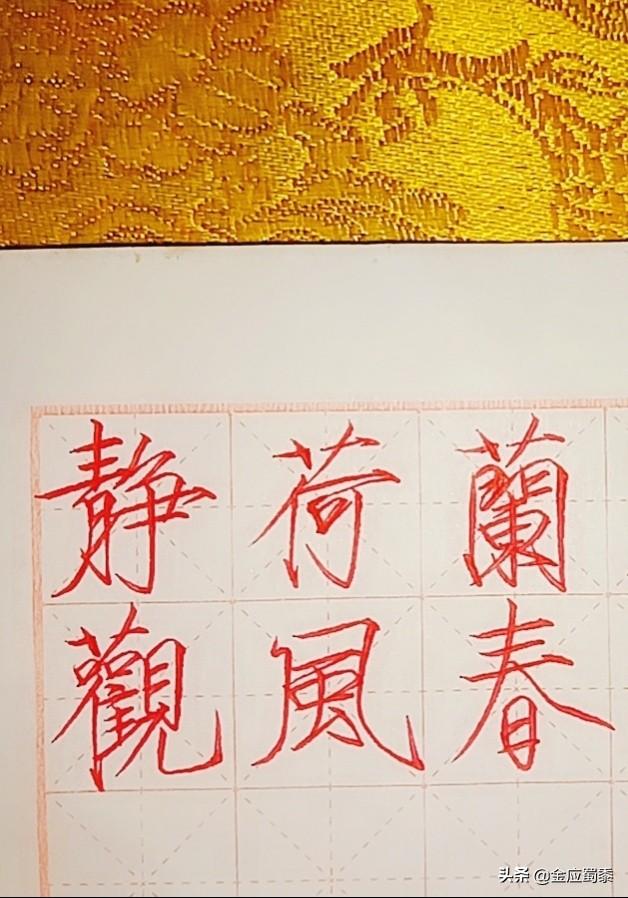 蘭春
荷風
静觀
头条 @金应蜀黍